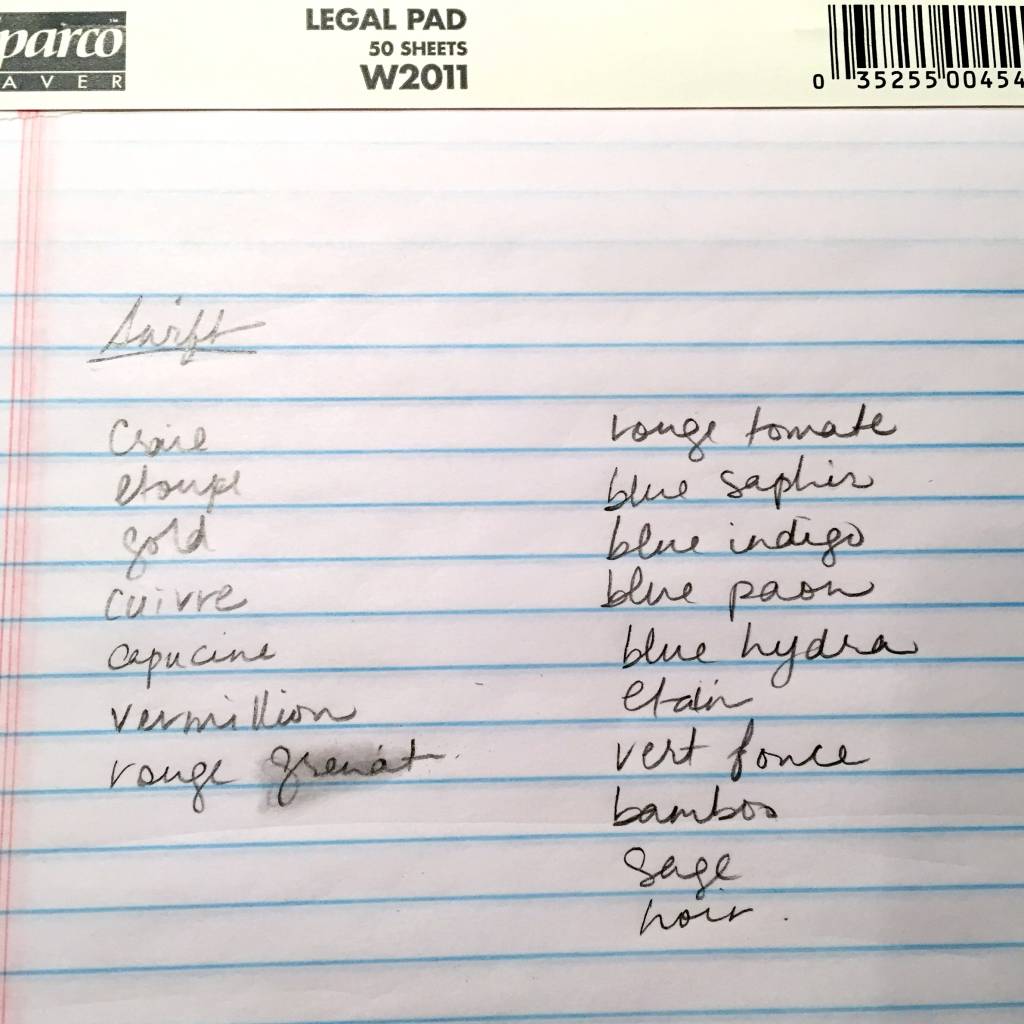 parco™
AVER
LEGAL PAD
50 SHEETS
W2011
0 35255 00454
Swift
Craie
etoupe
gold
cuivre
capucine
vermillion
rouge grenat
rouge tomate
blue saphir
blue indigo
blue paon
blue hydra
etain
vert fonce
bamboo
sage
noir.